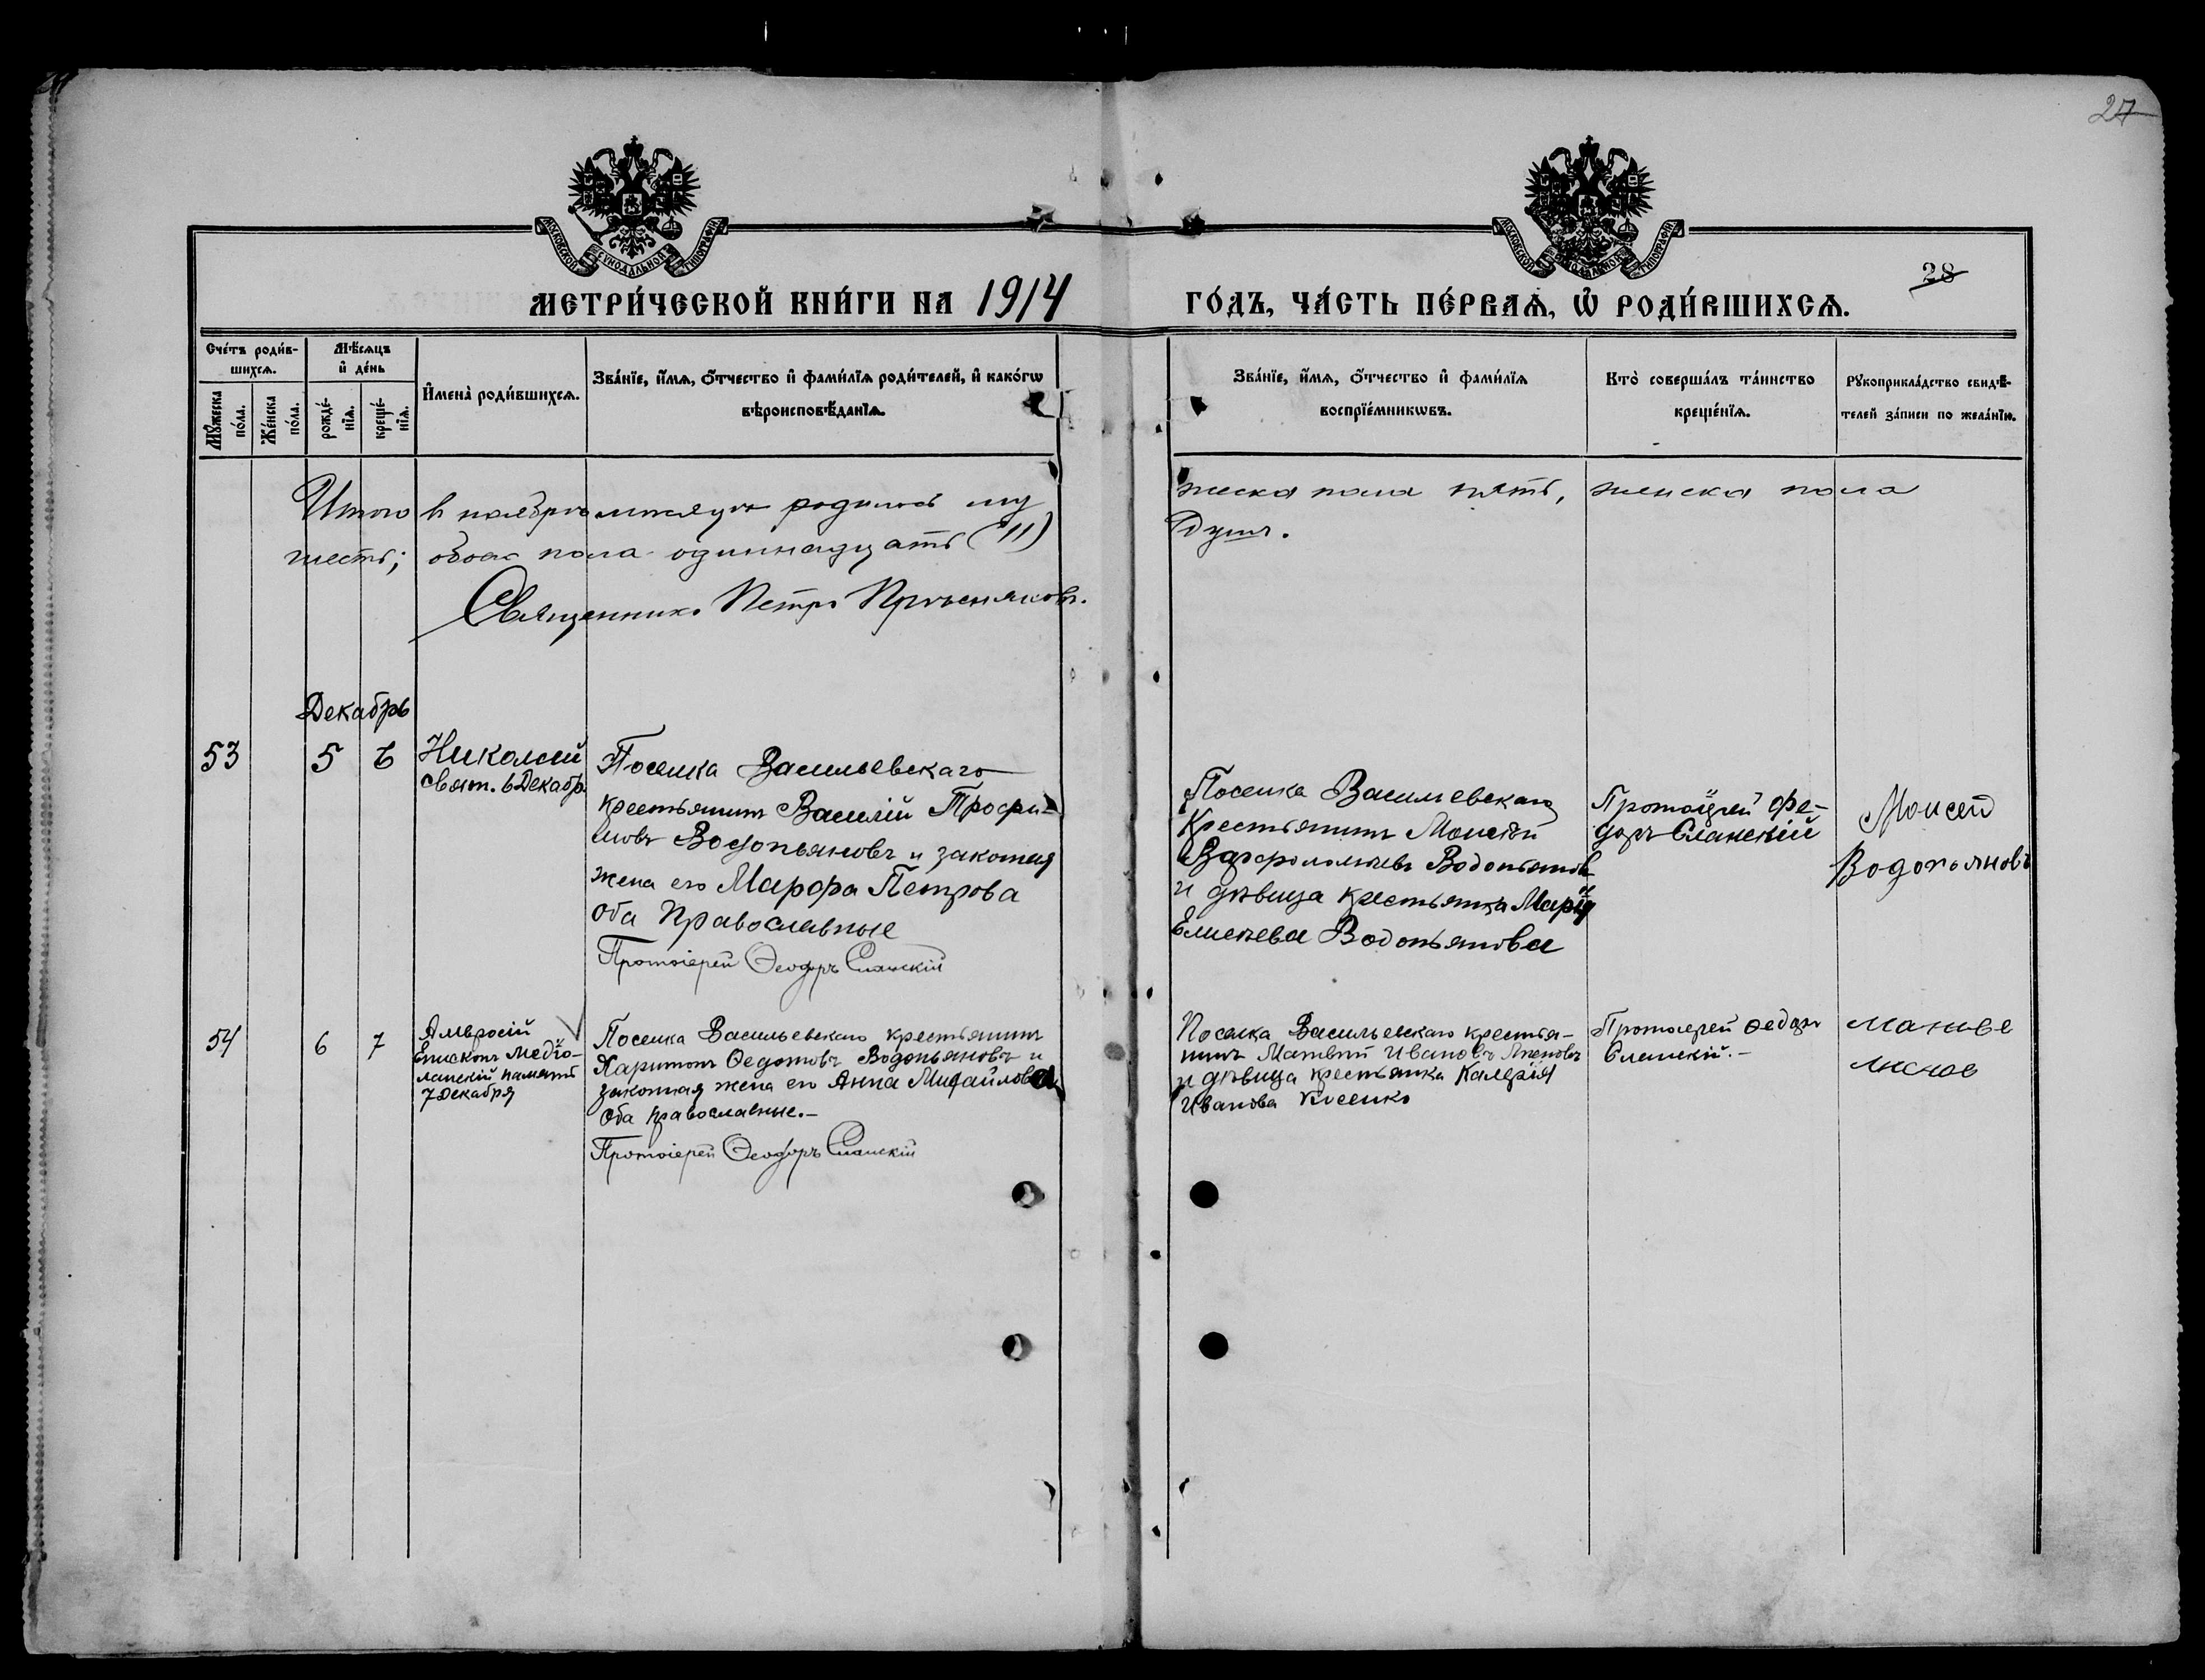 27
МОСКОВСКОЙ СѴНОДАЛЬНОЙ ТИПОГРАФІИ
МОСКОВСКОЙ СѴНОДАЛЬНОЙ ТИПОГРАФІИ
28
МЕТРИ́ЧЕСКОЙ КНИ́ГИ НА 1914
ГО́ДЪ, ЧА́СТЬ ПЕ́РВАѦ, Ѽ РОДИ́ВШИХСѦ.
Сче́тъ роди́в-
шихсѧ.
Мꙋ́жеска
по́ла.
Же́нска
по́ла.
Мѣ́сѧцъ
и҆ де́нь
рожде́-
нїѧ.
креще́-
нїѧ.
И҆мена̀ роди́вшихсѧ.
Зва́нїе, и҆́мѧ, ѻ҆́тчество и҆ фами́лїѧ роди́телей, и҆ како́гѡ
вѣроисповѣ́данїѧ.
Зва́нїе, и҆́мѧ, ѻ҆́тчество и҆ фами́лїѧ
воспрїе́мникѡвъ.
Кто̀ соверша́лъ та́инство
креще́нїѧ.
Рꙋкоприкла́дство свидѣ́-
телей за́писи по жела́нїю.
Итого въ ноябрѣ мѣсяцѣ родилось му
жеска пола пять, женска пола
шесть; обоего пола одиннадцать (11)
душъ.
Священникъ Петръ Прѣсняковъ.
Декабрь
53
5
6
Николай
Свят. 6 Декабр.
Поселка Васильевскаго
крестьянинъ Василій Трофи-
мовъ Водопьяновъ и законная
жена его Марфа Петрова
Оба Православные
Протоіерей Ѳеодоръ Сланскій
Поселка Васильевскаго
Крестьянинъ Моисей
Варфоломѣевъ Водопьяновъ
и дѣвица крестьянка Марія
Елисѣева Водопьянова
Протоіерей Фе-
доръ Сланскій
Моисей
Водопьяновъ
54
6
7
Амвросій
Епископъ Медіо-
ланскій память
7 Декабря
Поселка Васильевскаго крестьянинъ
Харитонъ Ѳедотовъ Водопьяновъ и
законная жена его Анна Михайлова
Оба православные.-
Протоіерей Ѳеодоръ Сланскій
Поселка Васильевскаго крестья-
нинъ Матвѣй Ивановъ
и дѣвица крестьянка Калерія
Иванова
Протоіерей Ѳедоръ
Сланскій.-